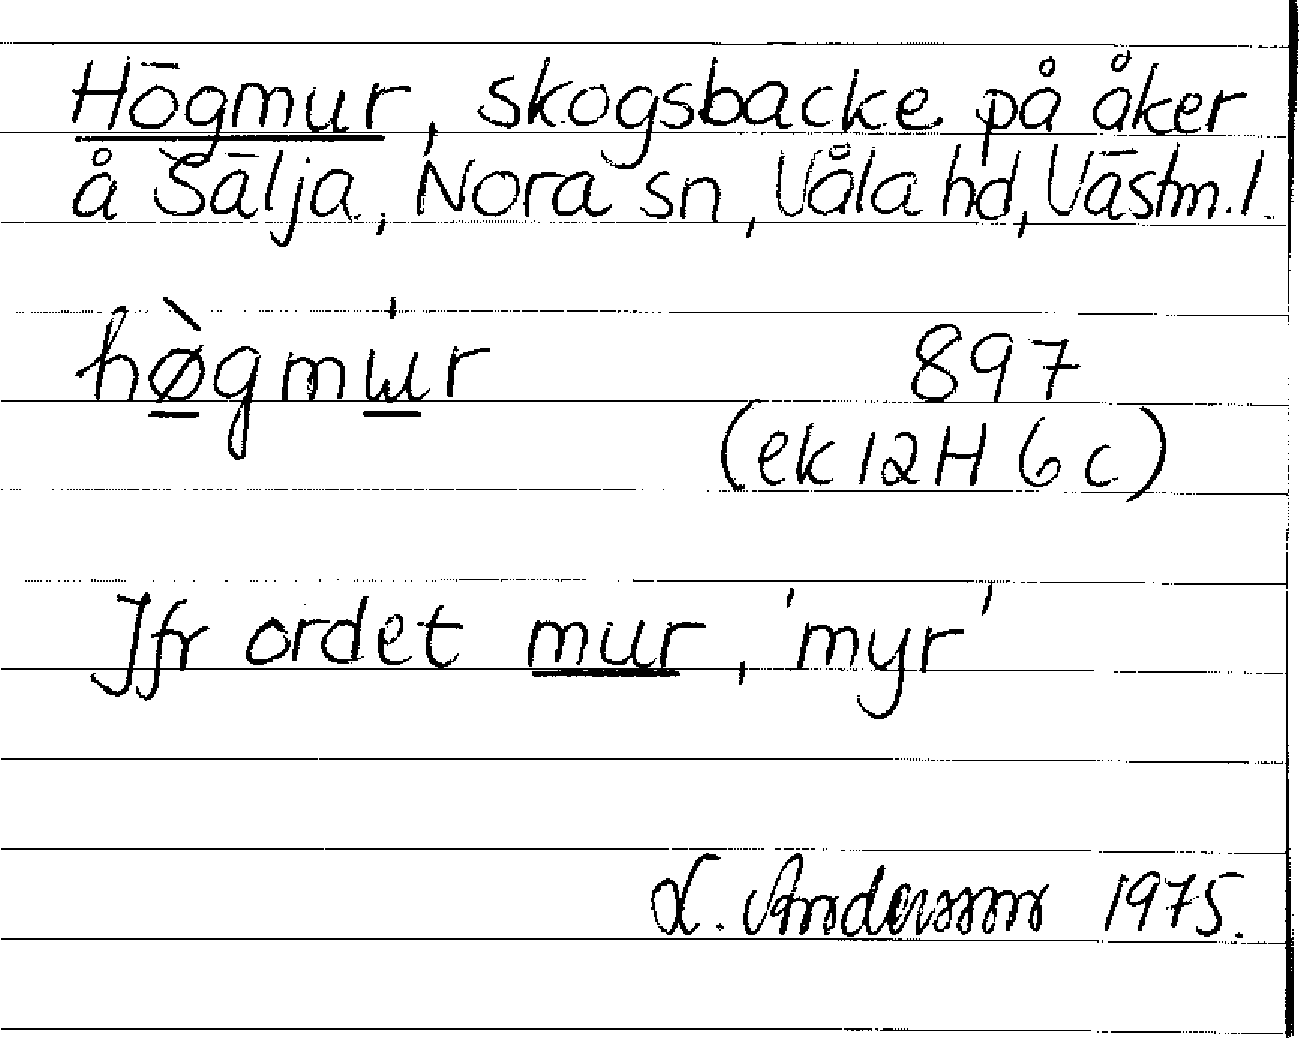 Högmur, skogsbacke på åker
å Sälja, Nora sn, Våla hd, Västm. l.
hø̀gmɯ̍r 897
(ek 12H 6c)
Jfr ordet mur, 'myr'
L. Andersson 1975.